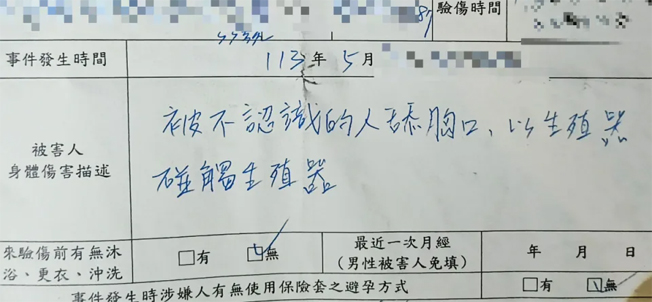 驗傷時間
事件發生時間 113年 5月
被害人
身體傷害描述
被不認識的人舔胸口、以生殖器
碰觸生殖器
來驗傷前有無沐
浴、更衣、沖洗
□有 ☑無
最近一次月經
(男性被害人免填)
年 月 日
事件發生時涉嫌人有無使用保險套之避孕方式 □有 ☑無